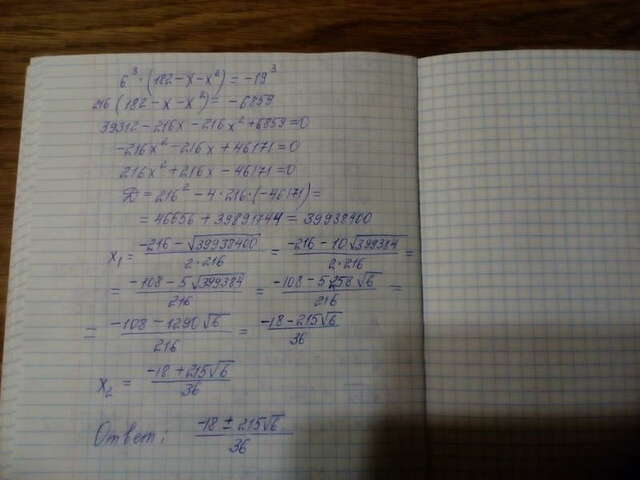 6³ · (182 - x - x²) = -19³
216 (182 - x - x²) = -6859
39312 - 216x - 216x² + 6859 = 0
-216x² - 216x + 46171 = 0
216x² + 216x - 46171 = 0
D = 216² - 4 · 216 · (-46171) =
= 46656 + 39891744 = 39938400
x₁ = (-216 - √39938400)/(2·216) = (-216 - 10√399384)/(2·216) =
= (-108 - 5√399384)/216 = (-108 - 5·258√6)/216 =
= (-108 - 1290√6)/216 = (-18 - 215√6)/36
x₂ = (-18 + 215√6)/36
Ответ: (-18 ± 215√6)/36